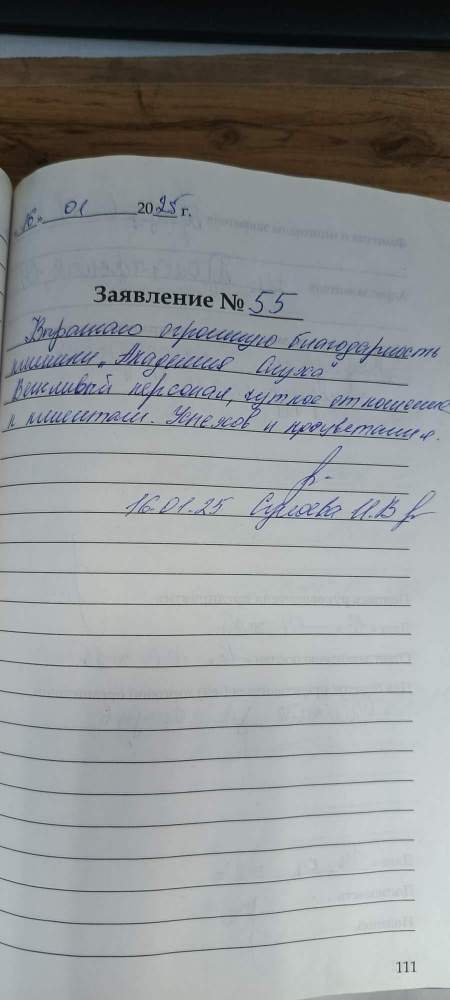 „16" 01 2025 г.
Заявление № 55
Выражаю огромную благодарность
клиники „Академия Слуха"
Вежливый персонал, чуткое отношение
к клиентам. Успехов и процветания.
16.01.25 И.В
111